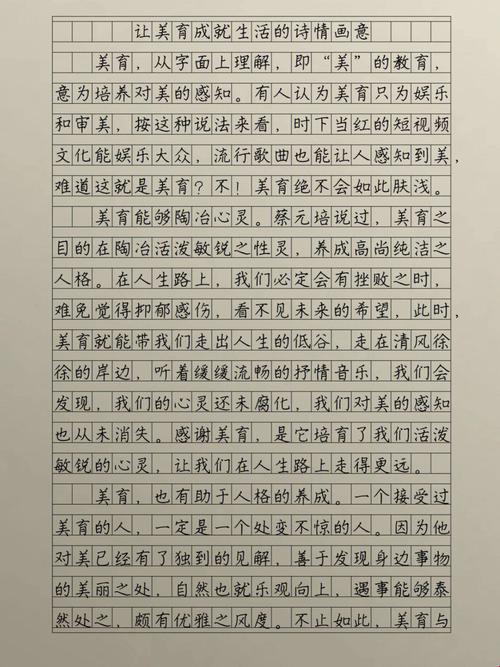 让美育成就生活的诗情画意
美育，从字面上理解，即“美”的教育，
意为培养对美的感知。有人认为美育只为娱乐
和审美，按这种说法来看，时下当红的短视频
文化能娱乐大众，流行歌曲也能让人感知到美，
难道这就是美育？不！美育绝不会如此肤浅。
美育能够陶冶心灵。蔡元培说过，美育之
目的在陶冶活泼敏锐之性灵，养成高尚纯洁之
人格。在人生路上，我们必定会有挫败之时，
难免觉得抑郁感伤，看不见未来的希望，此时，
美育就能带我们走出人生的低谷，走在清风徐
徐的岸边，听着缓缓流畅的抒情音乐，我们会
发现，我们的心灵还未腐化，我们对美的感知
也从未消失。感谢美育，是它培育了我们活泼
敏锐的心灵，让我们在人生路上走得更远。
美育，也有助于人格的养成。一个接受过
美育的人，一定是一个处变不惊的人。因为他
对美已经有了独到的见解，善于发现身边事物
的美丽之处，自然也就乐观向上，遇事能够泰
然处之，颇有优雅之风度。不止如此，美育与